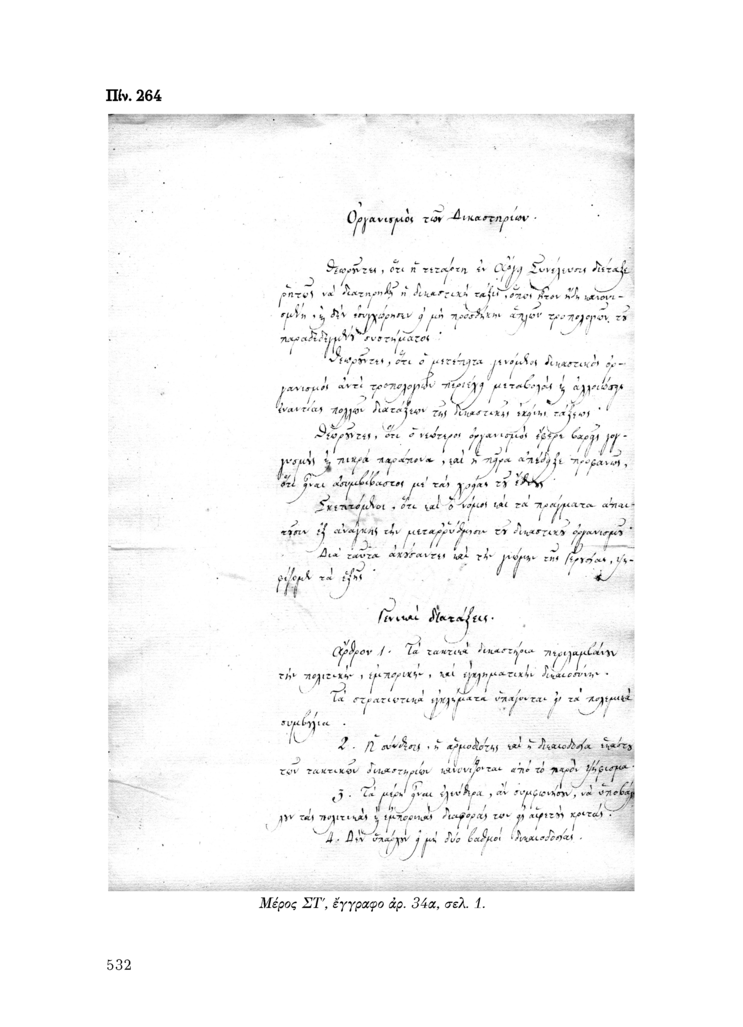 Πίν. 264
Ὀργανισμὸς τῶν Δικαστηρίων.
Θεωροῦντες, ὅτι ἡ τετάρτη ἐν Ἄργει Συνέλευσις διέταξε
ῥητῶς νὰ διατηρηθῇ ἡ δικαστικὴ τάξις, ὅπως ἦτον ἤδη κανονι-
σμένη, καὶ δὲν ἐσυγχώρησεν εἰ μὴ προσθήκην ἁπλῶν τροπολογιῶν τοῦ
παραδεδεγμένου συστήματος·
Θεωροῦντες, ὅτι ὁ μετέπειτα γενόμενος δικαστικὸς ὀρ-
γανισμὸς ἀντὶ τροπολογιῶν περιέχει μεταβολὰς καὶ ἀλλοιώσεις
ἐναντίας πολλῶν διατάξεων τῆς δικαστικῆς ἐκείνης τάξεως·
Θεωροῦντες, ὅτι ὁ νεώτερος ὀργανισμὸς ἔφερε βαρεῖς γογ-
γυσμοὺς καὶ πικρὰ παράπονα, καὶ ἡ πεῖρα ἀπέδειξε προφανῶς,
ὅτι εἶναι ἀσυμβίβαστος μὲ τὰς χρείας τοῦ ἔθνους·
Σκεπτόμενοι, ὅτι καὶ ὁ νόμος καὶ τὰ πράγματα ἀπαι-
τοῦσιν ἐξ ἀνάγκης τὴν μεταρρύθμισιν τοῦ δικαστικοῦ ὀργανισμοῦ·
Διὰ ταῦτα ἀκούσαντες καὶ τὴν γνώμην τῆς Γερουσίας, ψη-
φίζομεν τὰ ἑξῆς
Γενικαὶ διατάξεις.
Ἄρθρον 1. Τὰ τακτικὰ δικαστήρια περιλαμβάνουν
τὴν πολιτικὴν, ἐμπορικὴν, καὶ ἐγκληματικὴν δικαιοσύνην.
Τὰ στρατιωτικὰ ἐγκλήματα ὑπάγονται εἰς τὰ πολεμικὰ
συμβούλια.
2. Ἡ σύνθεσις, ἡ ἁρμοδιότης καὶ ἡ δικαιοδοσία ἑκάστου
τῶν τακτικῶν δικαστηρίων κανονίζονται ἀπὸ τὸ παρὸν ψήφισμα.
3. Τὰ μέρη εἶναι ἐλεύθερα, ἂν συμφωνήσουν, νὰ ὑποβάλ-
λουν τὰς πολιτικὰς καὶ ἐμπορικὰς διαφοράς των εἰς αἱρετοὺς κριτάς.
4. Δὲν ὑπάρχουν εἰ μὴ δύο βαθμοὶ δικαιοδοσίας.
Μέρος ΣΤ', ἔγγραφο ἀρ. 34α, σελ. 1.
532